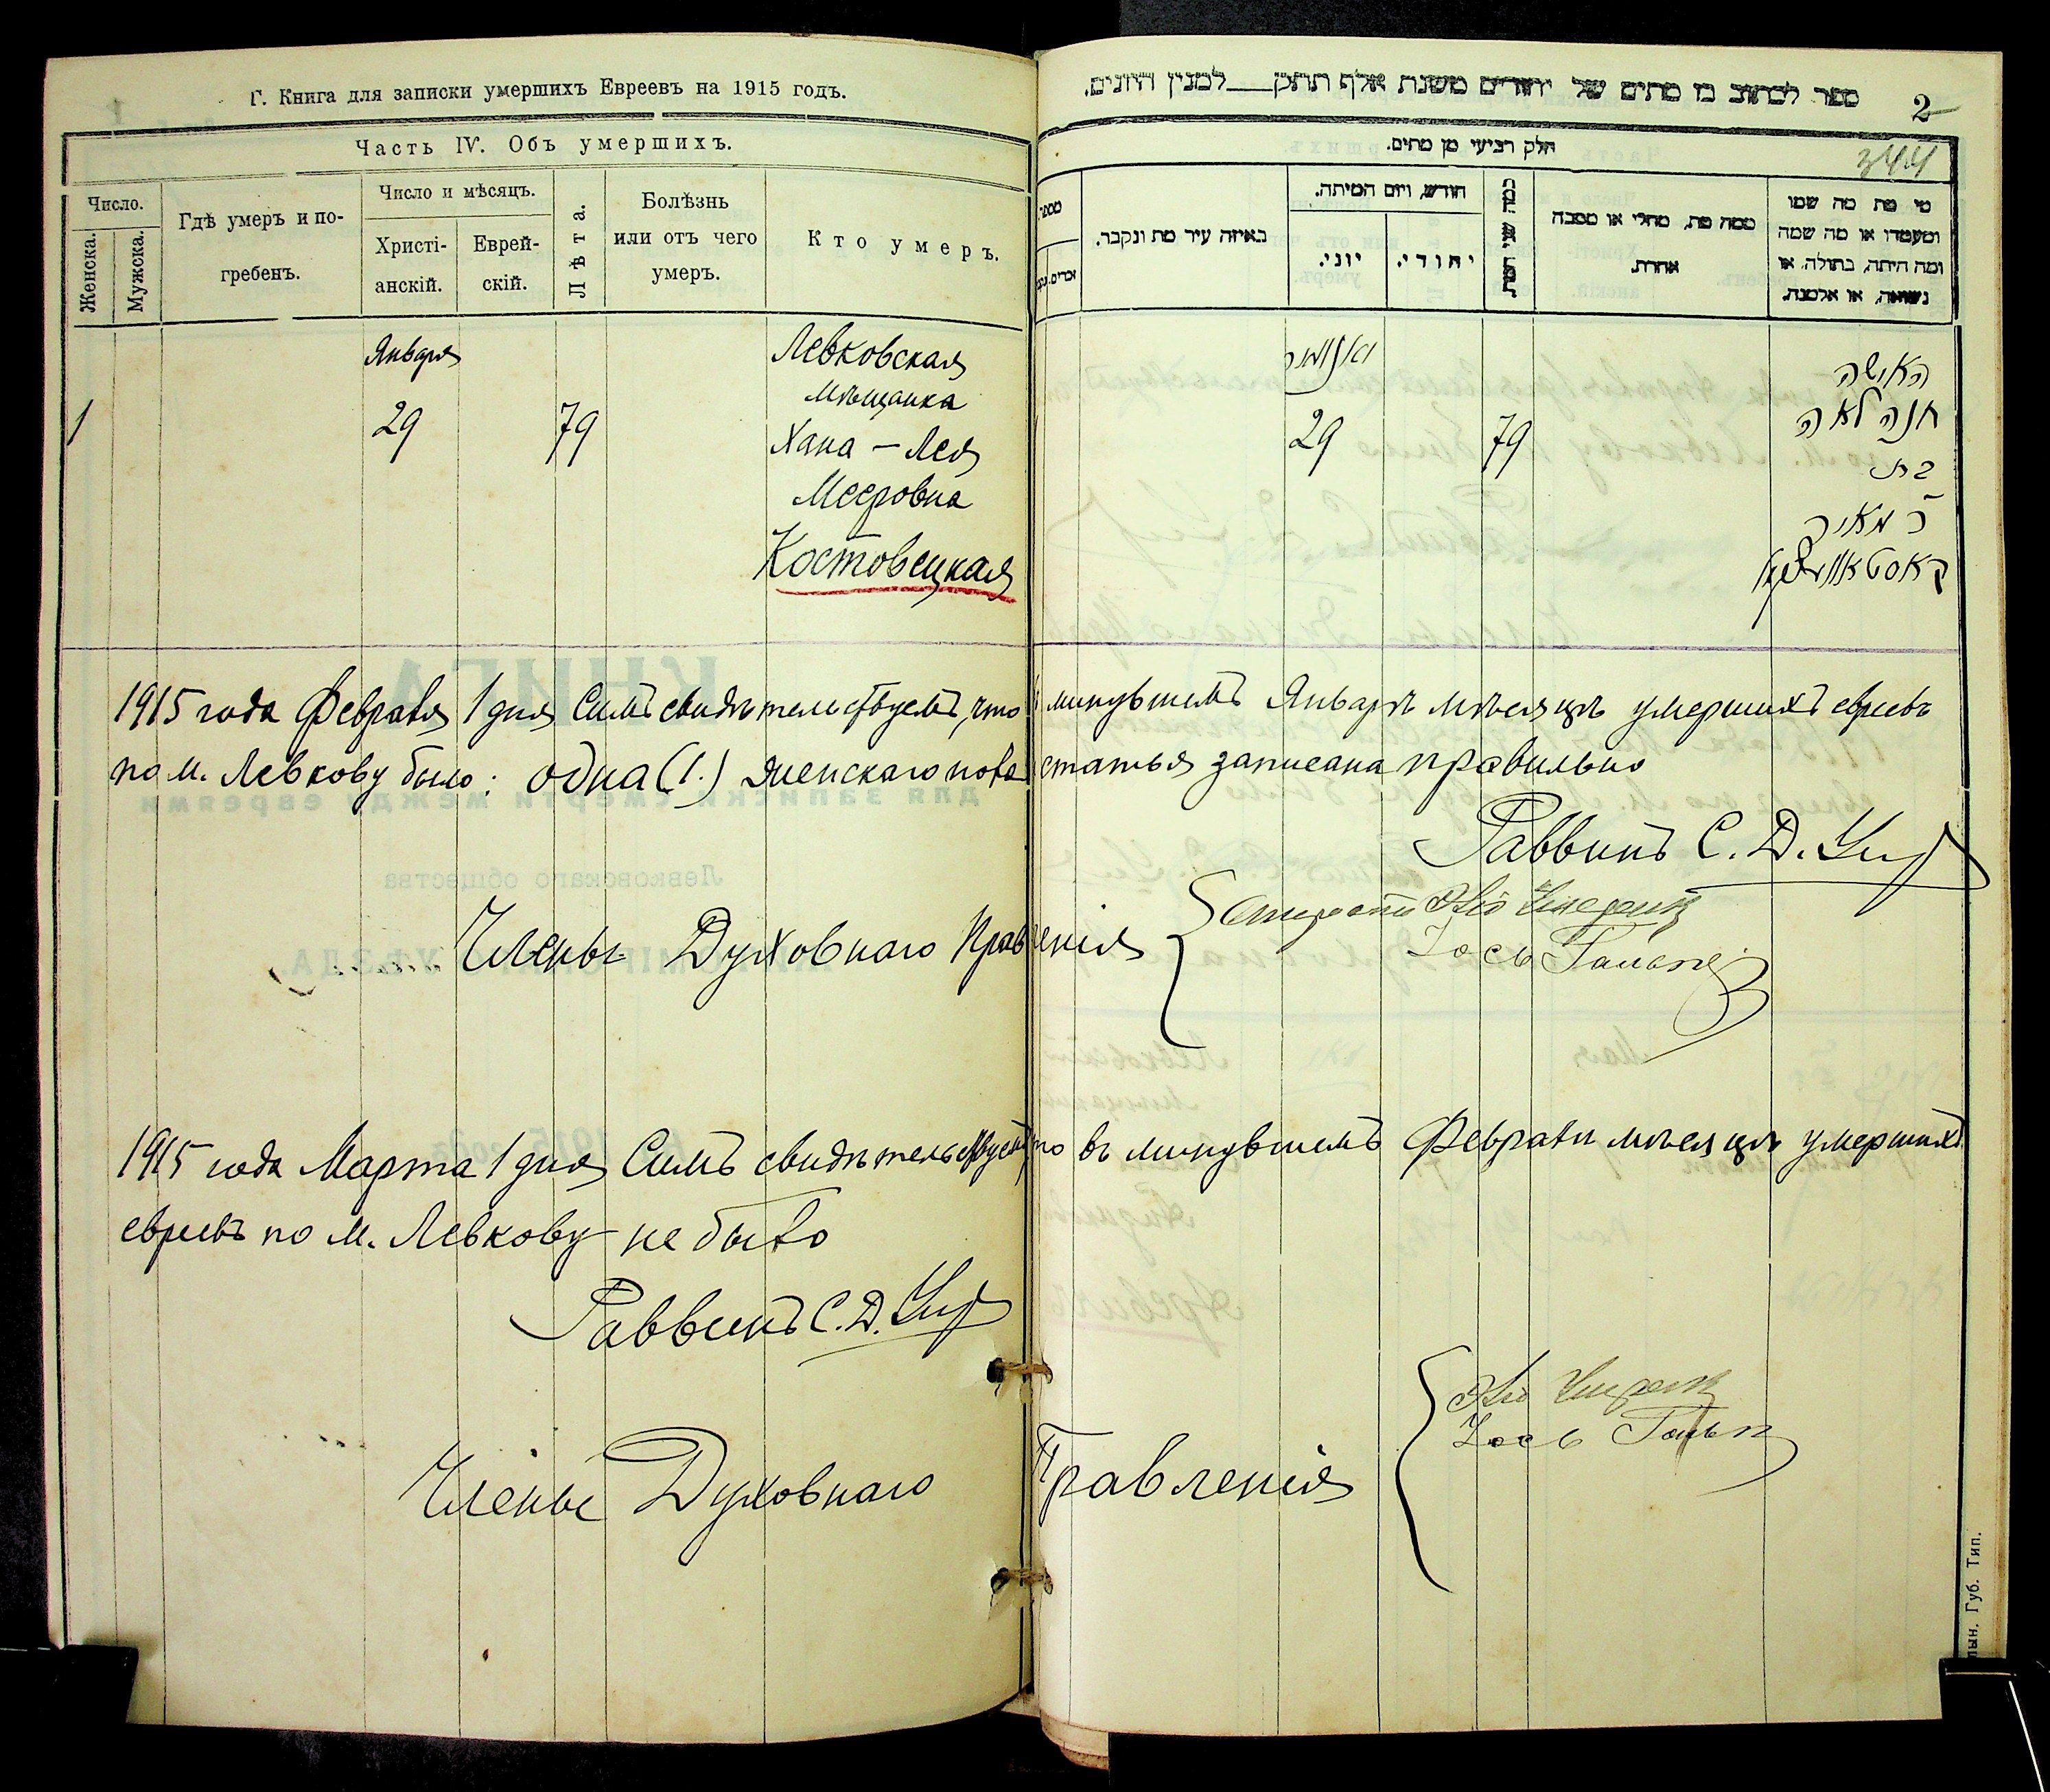 Г. Книга для записки умершихъ Евреевъ на 1915 годъ.
Часть IV. Объ умершихъ.
Число.
Женска.
Мужска.
Гдѣ умеръ и по-
гребенъ.
Число и мѣсяцъ.
Христі-
анскій.
Еврей-
скій.
Лѣта.
Болѣзнь
или отъ чего
умеръ.
Кто умеръ.
Января
Левковская
мѣщанка
1
29
79
Хана - Лея
Мееровна
Костовецкая
ספר לכתוב בו מתים של יהודים משנת אלף תתק___למנין היונים.
2
344
חלק רביעי מן מתים.
מספר
באיזה עיר מת ונקבר.
חודש, ויום המיתה.
יוני.
יהודי.
ממה מת, מחלי או מסבה
אחרת.
מי מת מה שמו
ומעמדו או מה שמה
ומה היתה, בתולה, או
נשואה, או אלמנה.
יאנואר
29
79
האשה
חנה לאה
בת
ר מאיר
1915 года Февраля 1 дня Симъ свидѣтельствуемъ, что минувшемъ Январѣ мѣсяцѣ умершихъ евреевъ
по м. Левкову было: одна (1.) женскаго пола статья записана правильно
Раввинъ С. Д.
Члены Духовнаго Правленія
Іось
1915 года Марта 1 дня Симъ свидѣтельствуемъ что въ минувшемъ Февралѣ мѣсяцѣ умершихъ
евреевъ по м. Левкову не было
Раввинъ С. Д.
Члены Духовнаго Правленія
Іось
лын. Губ. Тип.